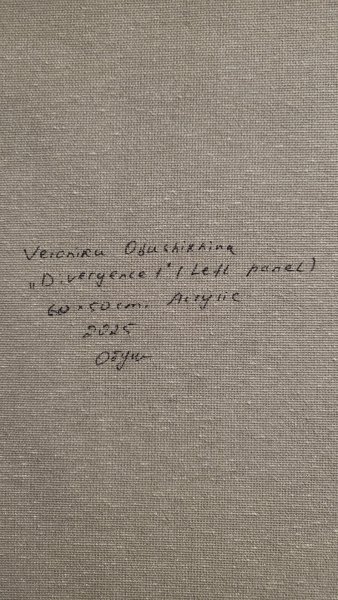 Veronika Obushikhina
„Divergence 1" (Left panel)
60×50cm. Acrylic
2025
Обуш